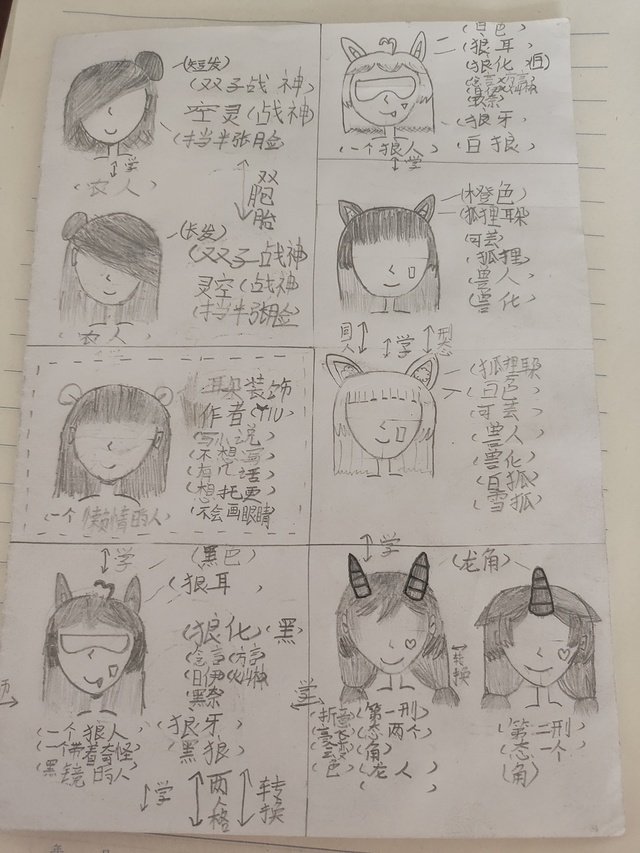 (短发)
(双子战神)
空灵(战神)
(挡半张脸)
学
(衣人)
双胞胎
(长发)
(双子战神)
灵空(战神)
(挡半张脸)
(衣人)
学
(白色)
(狼耳)
(狼化)
(狼牙)
(白狼)
(一个狼人)
学
(橙色)
(狐狸耳朵)
可芸
(狐狸)
(兽人)
(兽化)
同人
学
型态
(狐狸耳朵)
(白色)
可芸
(兽人)
(兽化)
(白狐)
(雪狐)
耳朵装饰
作者(YIU)
(写小说)
(不想写)
(想托更)
(不会画眼睛)
(一个懒惰的人)
学
(黑色)
(狼耳)
(狼化)(黑)
(狼牙)
(黑狼)
(一个狼人)
(一个带着奇怪
黑镜的人)
学
两人格
转换
学
(龙角)
转换
学
(第一刑态两个角)
(龙人)
(第二刑态一个角)